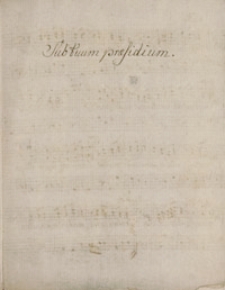 Sub tuum præsidium.